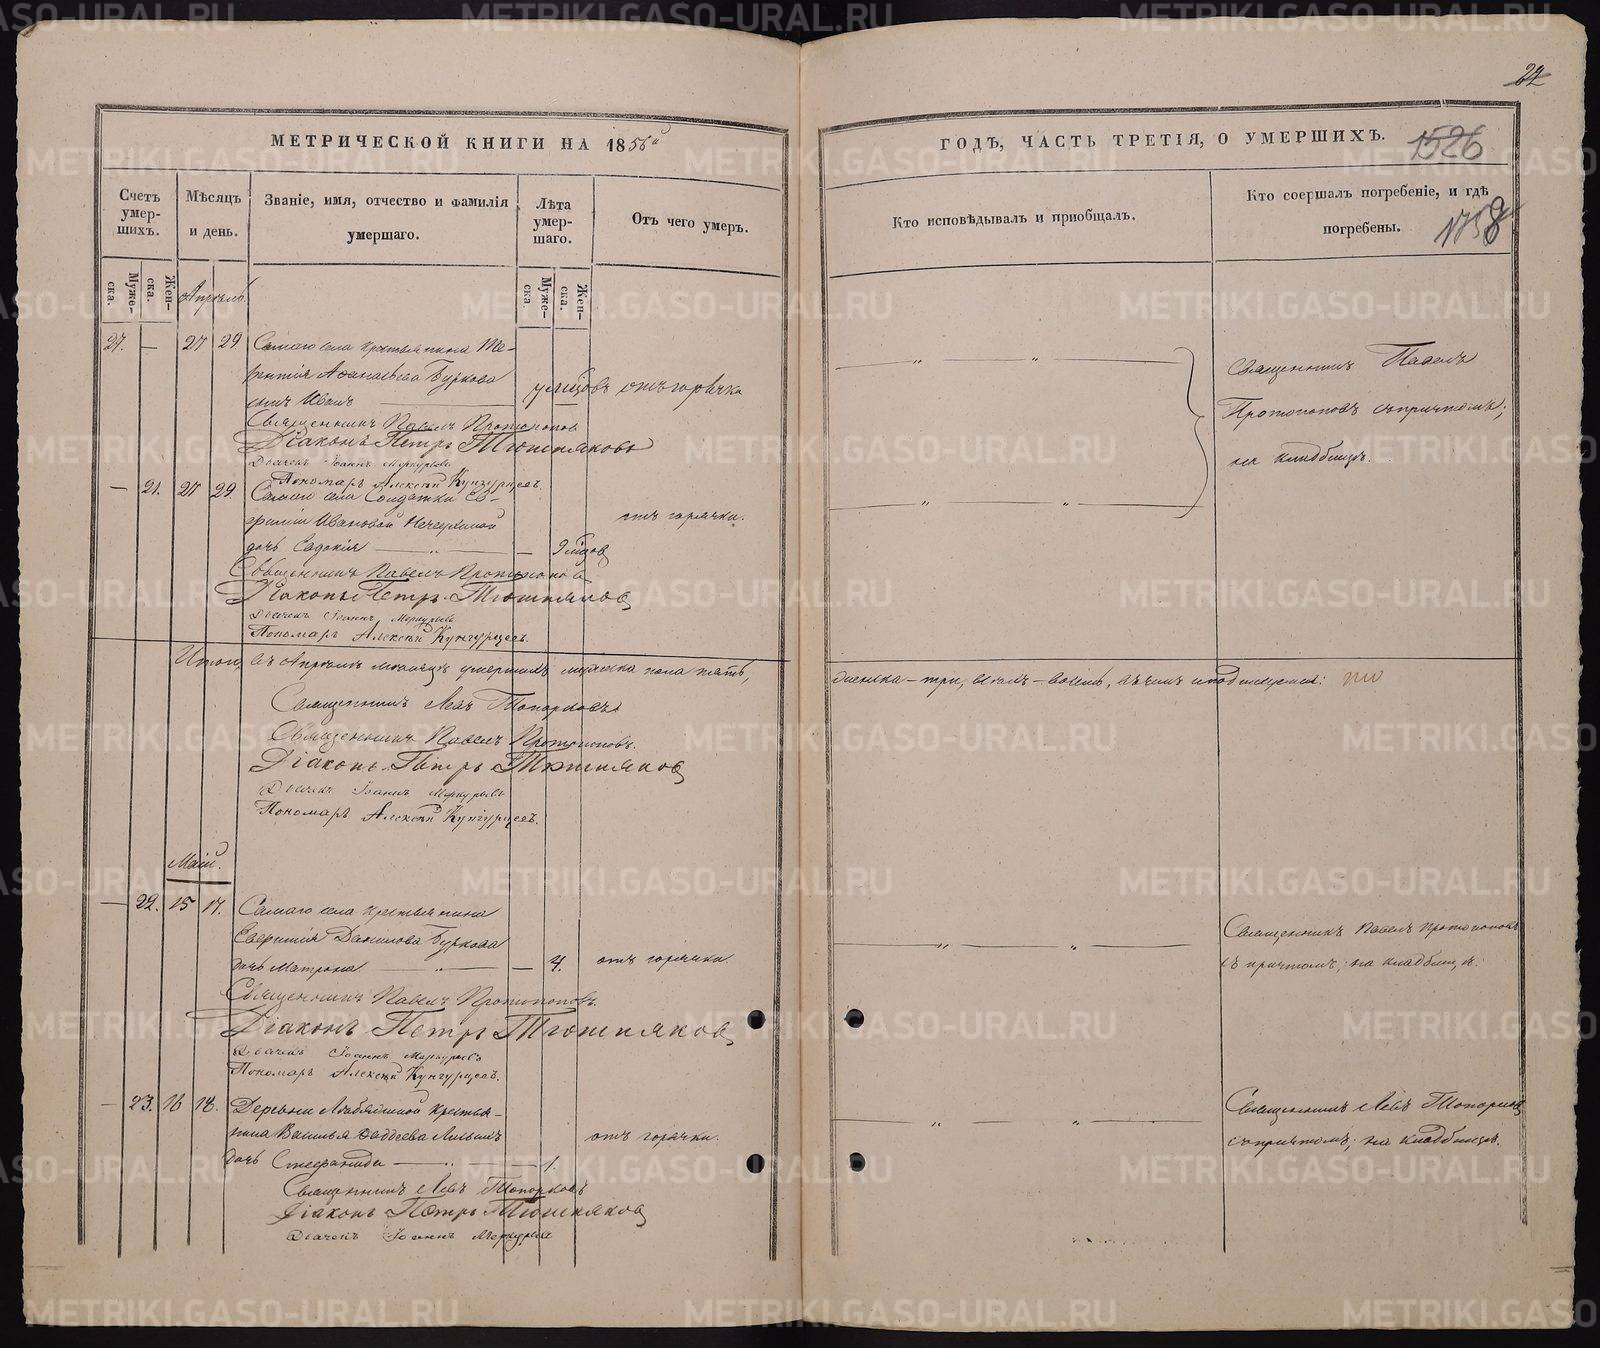 22
МЕТРИЧЕСКОЙ КНИГИ НА 1856й
ГОДЪ, ЧАСТЬ ТРЕТІЯ, О УМЕРШИХЪ.
1526
1758
Счетъ умер-шихъ.
Муже-ска.
Жен-ска.
Мѣсяцъ и день.
Званіе, имя, отчество и фамилія умершаго.
Лѣта умер-шаго.
Муже-ска.
Жен-ска.
Отъ чего умеръ.
Кто исповѣдывалъ и пріобщалъ.
Кто соершалъ погребеніе, и гдѣ погребены.
Апрѣль.
27. — 27 29. Самаго села крестьянина Те-
рентія Аѳанасьева Буркова
сынъ Иванъ
отъ горячки
Священникъ Павелъ
Протопоповъ съ причтомъ;
на кладбищѣ.
Священникъ Павелъ Протопоповъ
Діаконъ Петръ Тюшняковъ
Дьячекъ Іоаннъ Меркурьевъ
Пономарь Алексѣй Кунгурцевъ.
— 21. 27 29. Самаго села Солдатки
Ивановой
дочь Евдокія — 9 мѣсяцовъ
отъ горячки.
Священникъ Павелъ Протопоповъ
Діаконъ Петръ Тюшняковъ
Дьячекъ Іоаннъ Меркурьевъ
Пономарь Алексѣй Кунгурцевъ.
Итого, въ Апрѣлѣ мѣсяцѣ умершихъ мужеска пола пять,
женска — три, всѣхъ — восемь, въ чемъ и подписуемся:
Священникъ Левъ Топорковъ
Священникъ Павелъ Протопоповъ.
Діаконъ Петръ Тюшняковъ
Дьячекъ Іоаннъ Меркурьевъ
Пономарь Алексѣй Кунгурцевъ.
Маій.
— 22. 15 17. Самаго села крестьянина
Данилова Буркова
дочь Матрона — 4. отъ горячки.
Священникъ Павелъ Протопоповъ
съ причтомъ; на кладбищѣ.
Священникъ Павелъ Протопоповъ.
Діаконъ Петръ Тюшняковъ
Дьячекъ Іоаннъ Меркурьевъ
Пономарь Алексѣй Кунгурцевъ.
— 23. 16 18. Деревни крестья-
нина Василья Ѳаддеева
дочь Стефанида 1.
отъ горячки.
Священникъ Левъ Топорковъ
съ причтомъ; на кладбищѣ.
Священникъ Левъ Топорковъ
Діаконъ Петръ Тюшняковъ
Дьячекъ Іоаннъ Меркурьевъ
METRIKI.GASO-URAL.RU